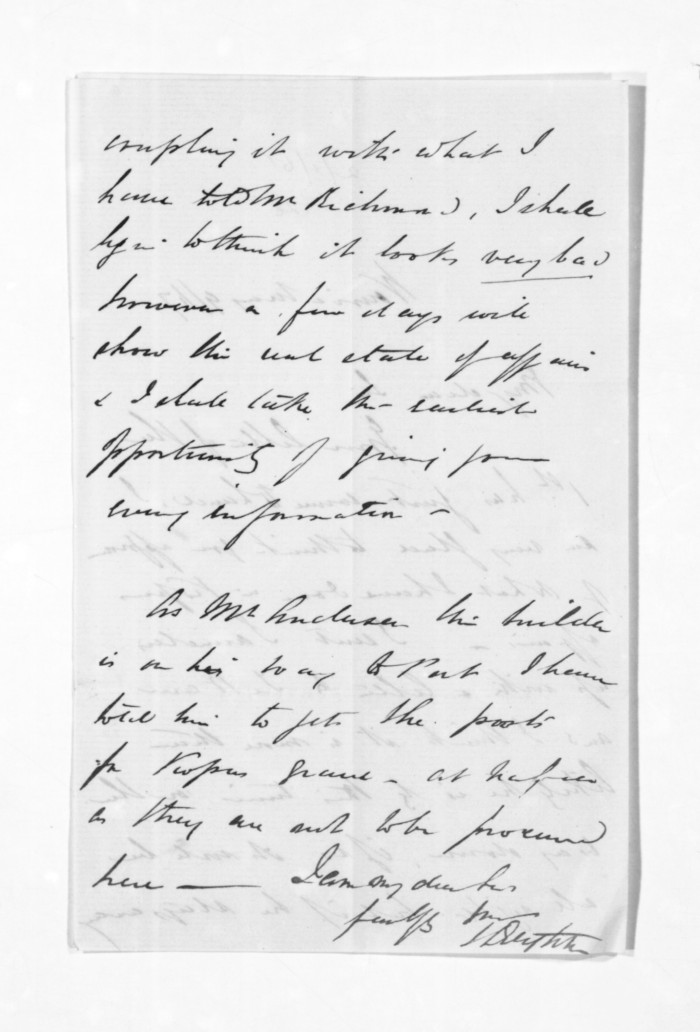 coupling it with what I
have told Mr Richmond, I shall
begin to think it looks very bad
however a few days will
show the real state of affairs
& I shall take the earliest
opportunity of giving you
every information –
As Mr Anderson the builder
is on his way to Port I have
told him to get the posts
for grave – at Napier
as they are not to be procured
here — I am my dear Sir